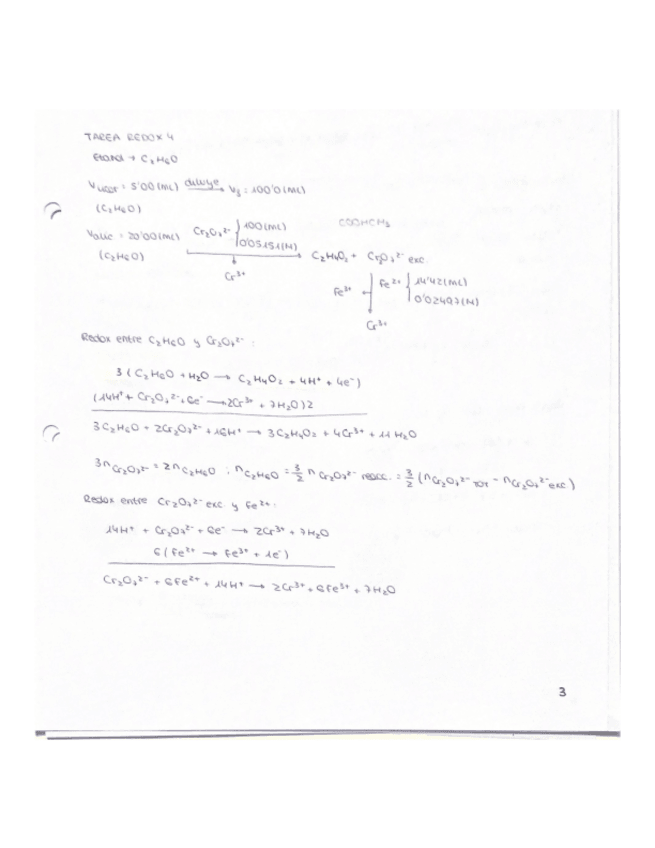 TAREA REDOX 4
Etanol → C₂H₆O
V licor = 5'00 (mL) diluye → Vf = 100'0 (mL)
(C₂H₆O)
COOHCH₃
Valic = 20'00 (mL) Cr₂O₇²⁻ { 100 (mL)
0'05151 (M)
(C₂H₆O) → C₂H₄O₂ + Cr₂O₇²⁻ exc.
Cr³⁺
Fe³⁺ Fe²⁺ { 14'42 (mL)
0'02497 (M)
Cr³⁺
Redox entre C₂H₆O y Cr₂O₇²⁻ :
3 (C₂H₆O + H₂O → C₂H₄O₂ + 4H⁺ + 4e⁻)
(14H⁺ + Cr₂O₇²⁻ + 6e⁻ → 2Cr³⁺ + 7H₂O) 2
3C₂H₆O + 2Cr₂O₇²⁻ + 16H⁺ → 3C₂H₄O₂ + 4Cr³⁺ + 11H₂O
3n Cr₂O₇²⁻ = 2n C₂H₆O ; n C₂H₆O = 3/2 n Cr₂O₇²⁻ reacc. = 3/2 (n Cr₂O₇²⁻ TOT - n Cr₂O₇²⁻ exc)
Redox entre Cr₂O₇²⁻ exc. y Fe²⁺ :
14H⁺ + Cr₂O₇²⁻ + 6e⁻ → 2Cr³⁺ + 7H₂O
6 (Fe²⁺ → Fe³⁺ + 1e⁻)
Cr₂O₇²⁻ + 6Fe²⁺ + 14H⁺ → 2Cr³⁺ + 6Fe³⁺ + 7H₂O
3